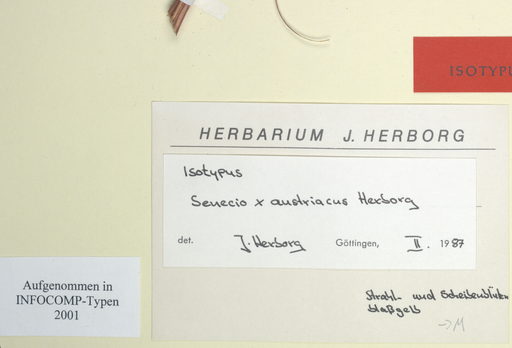 ISOTYPU
HERBARIUM J. HERBORG
Isotypus
Senecio x austriacus Herborg
det. J. Herborg Göttingen, II. 1987
Strahl- und Scheibenblüten
blaßgelb
→M
Aufgenommen in
INFOCOMP-Typen
2001